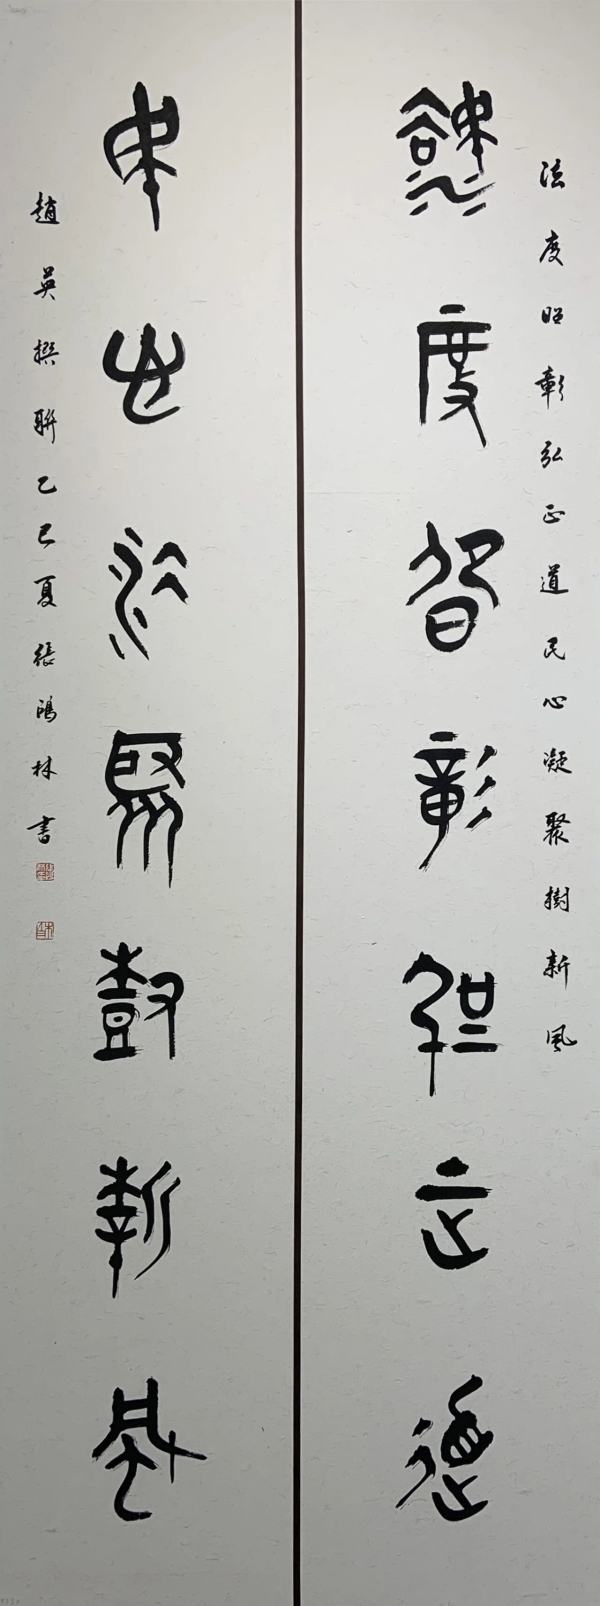 法度昭彰弘正道民心凝聚樹新風
法度昭彰弘正道
民心凝聚樹新風
趙英撰聯乙巳夏張鴻林書